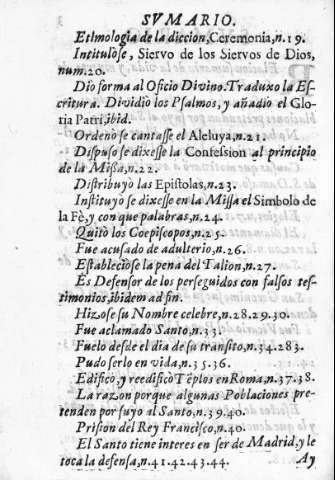 SVMARIO.
Etimologia de la diccion, Ceremonia, n.19.
Intitulòse, Siervo de los Siervos de Dios,
num.20.
Diò forma al Oficio Divino. Traduxo la Es-
critura. Dividiò los Psalmos, y añadiò el Glo-
ria Patri, ibid.
Ordenò se cantasse el Aleluya, n.21.
Dispuso se dixesse la Confession al principio
de la Missa, n.22.
Distribuyò las Epistolas, n.23.
Instituyò se dixesse en la Missa el Simbolo de
la Fè, y con que palabras, n.24.
Quitò los Coepiscopos, n.25.
Fue acusado de adulterio, n.26.
Establecióse la pena del Talion, n.27.
Es Defensor de los perseguidos con falsos tes-
timonios, ibidem ad fin.
Hizose su Nombre celebre, n.28.29.30.
Fue aclamado Santo, n.33.
Fuelo desde el dia de su transito, n.34.283.
Pudo serlo en vida, n.35.36.
Edificò, y reedificò Tẽplos en Roma, n.37.38.
La razon porque algunas Poblaciones pre-
tenden por suyo al Santo, n.39.40.
Prision del Rey Francisco, n.40.
El Santo tiene interes en ser de Madrid, y le
toca la defensa, n.41.42.43.44.
Ay